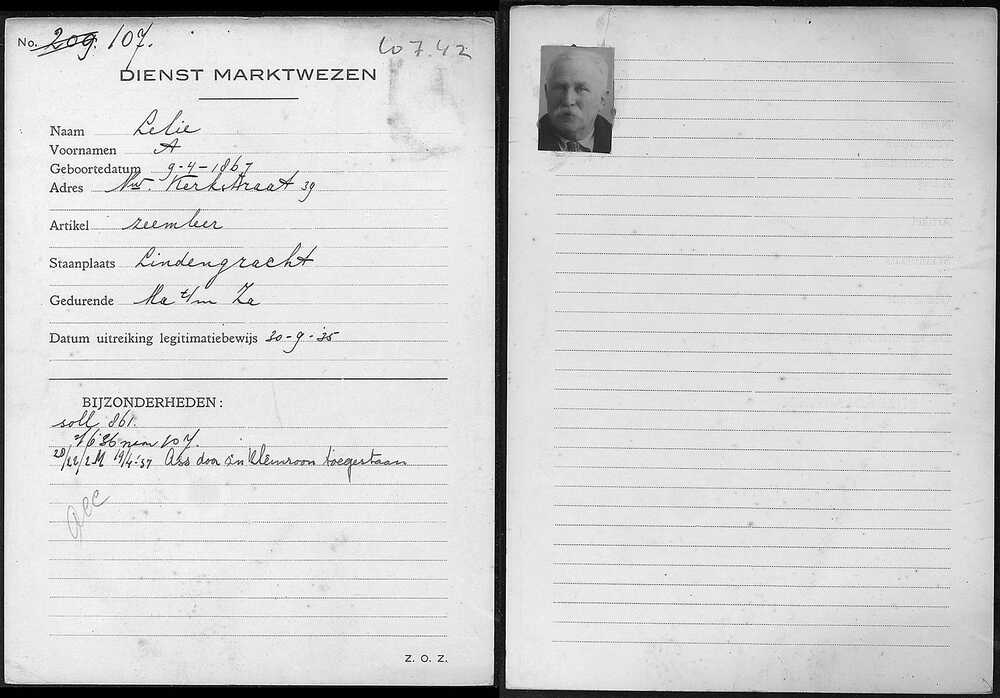 No. 209. 107.
107.42
DIENST MARKTWEZEN
Naam Lelie
Voornamen A
Geboortedatum 9-4-1867
Adres Nw. Kerkstraat 39
Artikel zeemleer
Staanplaats Lindengracht
Gedurende Ma t/m Za
Datum uitreiking legitimatiebewijs 30-9-35
BIJZONDERHEDEN:
soll 861.
6 36 107.
28/22/2 M 19/4-'37 Ass door z'n kleinzoon toegestaan
acc
Z. O. Z.